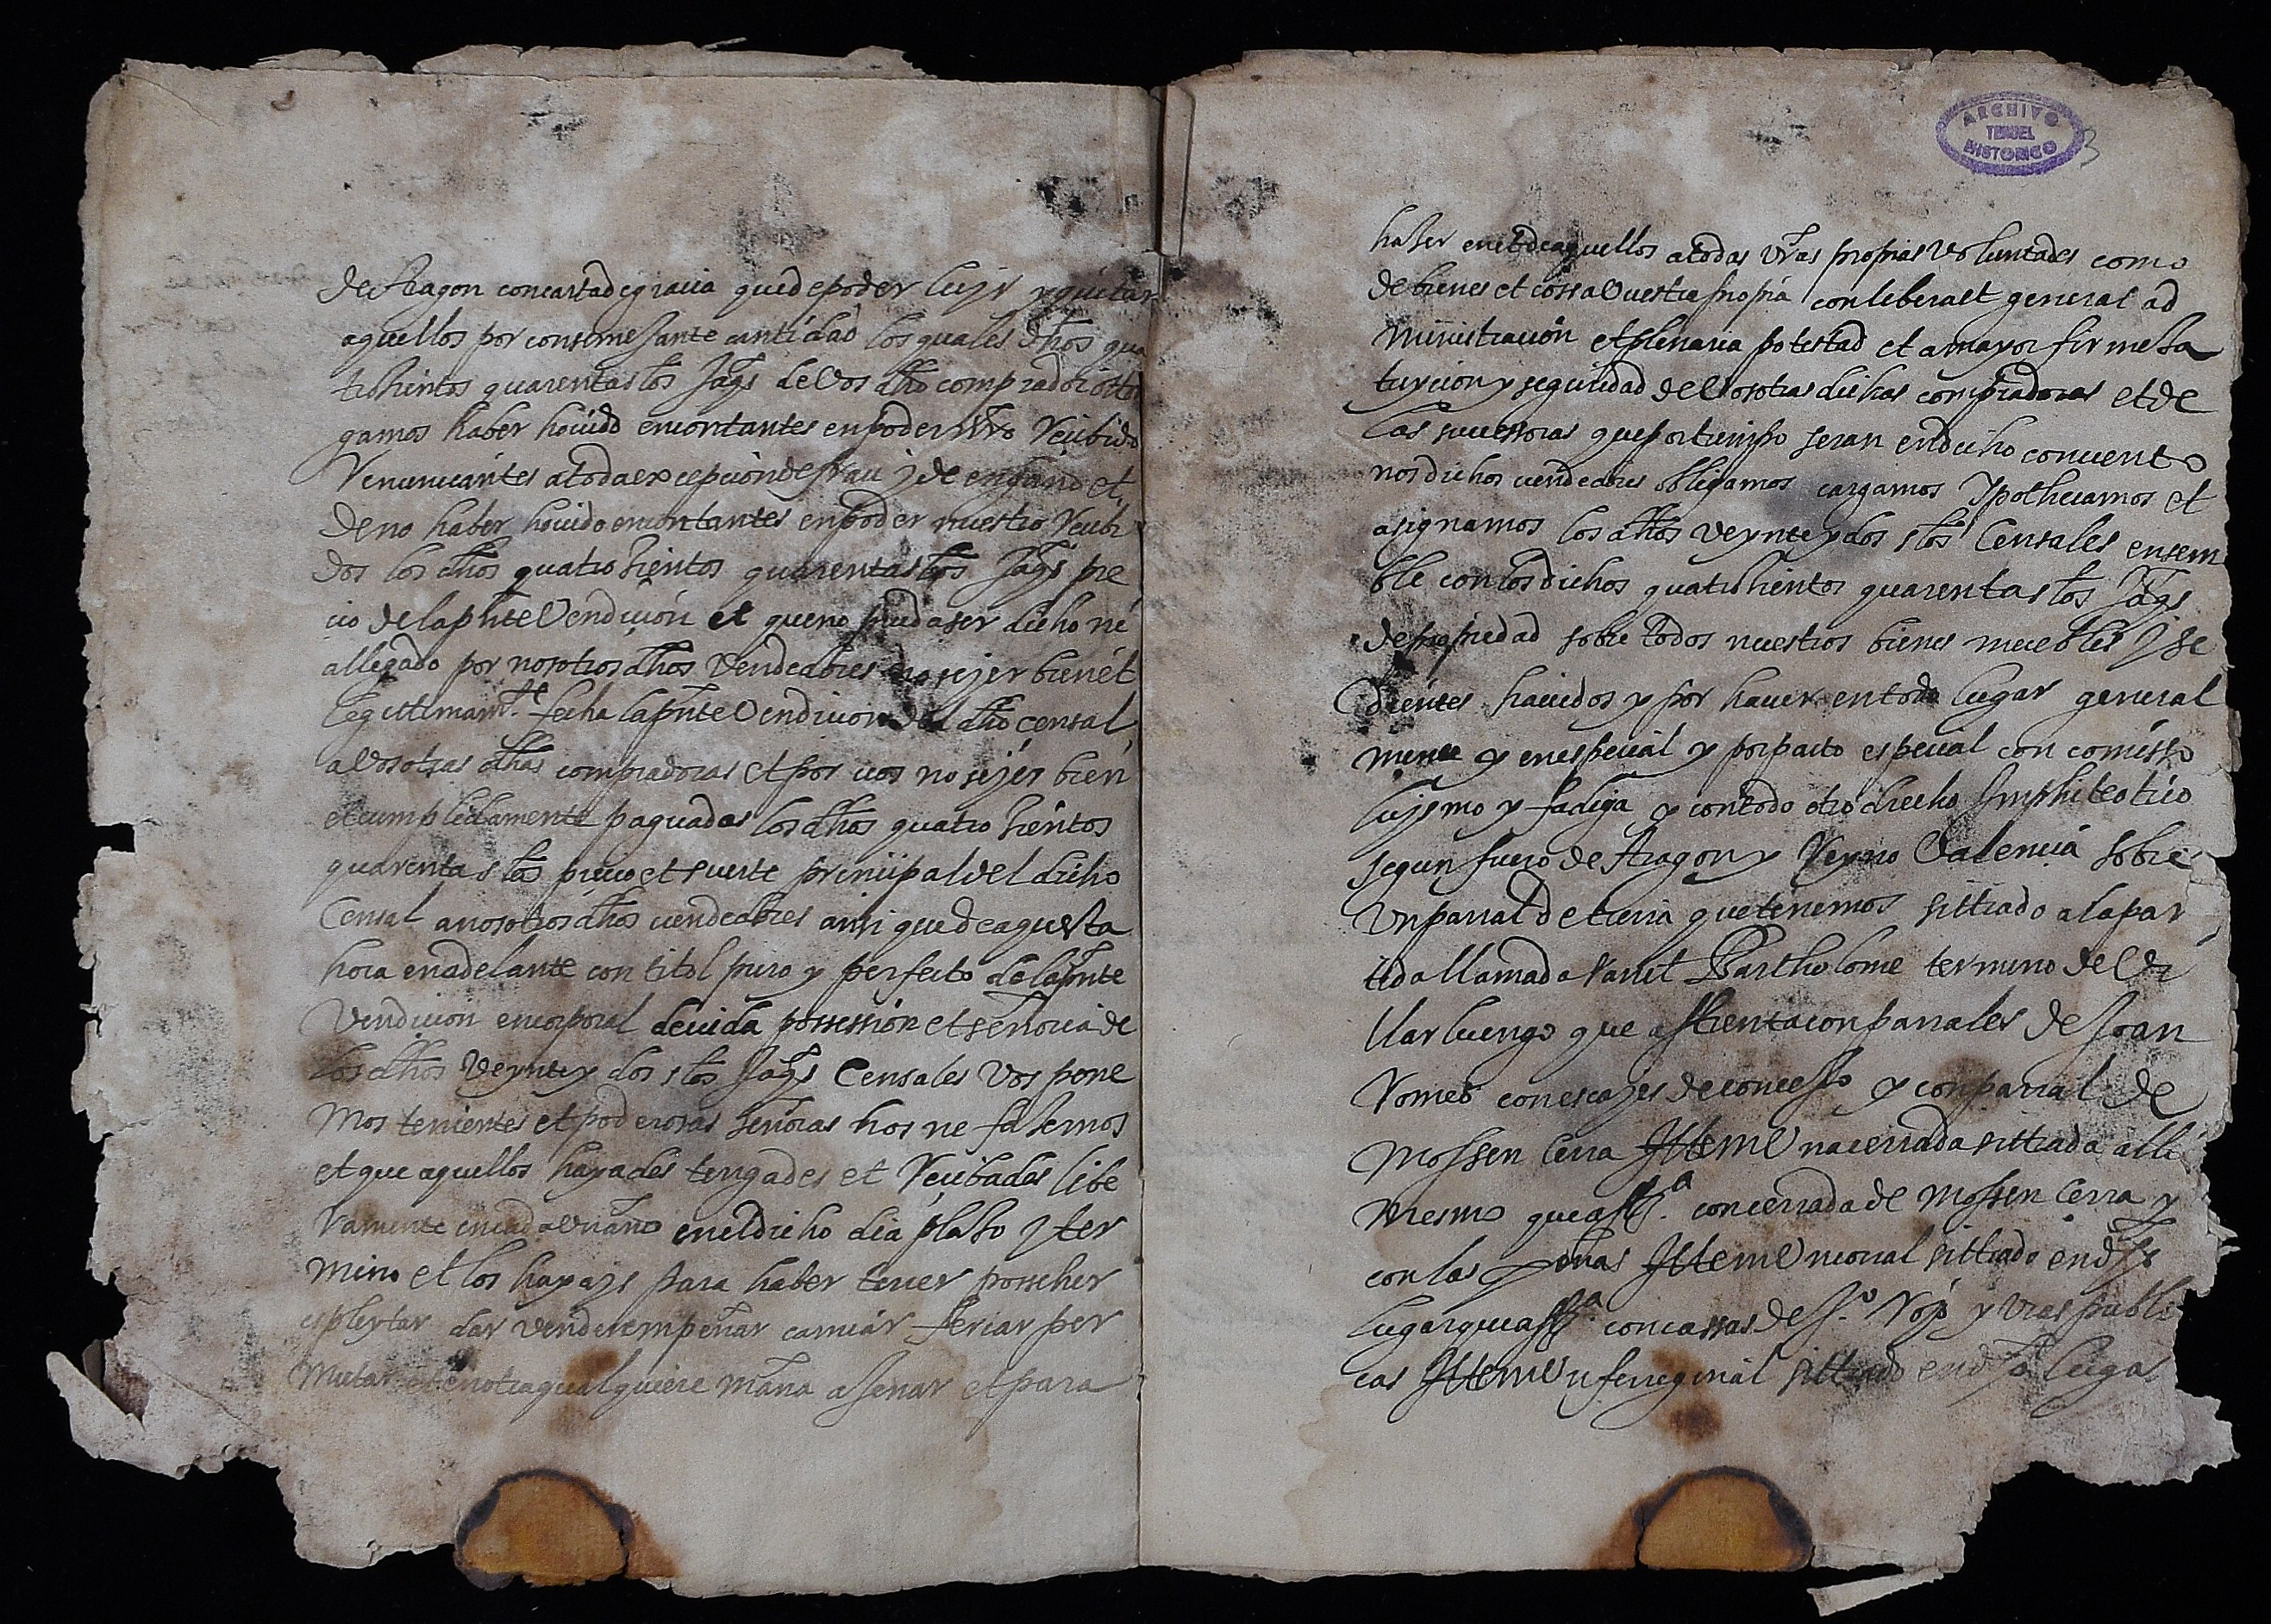 de Aragon con carta de gracia que de poder luyr y quitar
aquellos por consemeSante cantidad los quales dhos qua
troSientos quarenta slos Jaqs de Vos dho comprador otor
gamos haber hauido en contantes en poder nro Recibido
Renunciantes a toda excepcion de frau y de engano et
de no haber hauido en contantes en poder nuestro Recibi
dos los dhos quatro Sientos quarenta slos Jaqs pre
cio de la pnte Vendicion et que no pueda ser dicho ni
allegado por nosotros dhos Vendedores no seyer bien et
legittimamte. fecha la pnte Vendicion del dho censal
a Vosotras dhas compradoras et por uos no seyer bien
et cumplidamente paguadas los dhos quatro Sientos
quarenta slos precio et suerte principal del dicho
Censal a nosotros dhos uendedores ansi que de aquesta
hora en adelante con titol puro y perfecto de la pnte
Vendicion en corporal deuida possession et senoria de
los dhos Veynte y dos slos Jaqs Censales Vos pone
mos tenientes et poderosas senoras hos ne faSemos
et que aquellos hayades tengades et Recibades libe
ramente en cada Un año en el dicho dia plaSo y ter
mino et los hayays para haber tener posseher
espleytar dar vender empeñar camiar feriar per
mutar et en otra qualquiere mana assenar et para
ARCHIVO
TERUEL
HISTORICO
3
haSer en et de aquellos a todas Vras propias Voluntades como
de bienes et cossa Vuestra propia con liberal et general ad
ministracion et plenaria potestad et a mayor firmeSa
tuycion y seguridad de Vosotras dichas compradoras et de
las sucessoras que por tiempo seran en dicho conuento
nos dichos uendedores obligamos cargamos Ypothecamos et
asignamos los dhos Veynte y dos slos Censales ensem
ble con los dichos quatroSientos quarenta slos Jaqs
de propiedad sobre todos nuestros bienes muebles y se
dientes hauidos y por hauer en todo lugar general
mente y en especial y por pacto especial con comisso
luysmo y fadiga y con todo otro drecho Emphiteotico
segun fuero de Aragon y Reyno Valencia sobre
Un parral de tierra que tenemos sittiado a la par
tida llamada sanct Bartholome termino de Vi
llarluengo que affrenta con parrales de Joan
Romeo con escajes de concejo y con parral de
Mossen Cerra Ittem Una cerrada sittiada alli
mesmo que affa. con cerrada de Mossen Cerra y
con las Ittem Un corral sittiado en dho
lugar que affa. con cassas de Jo. Roj y Vias publi
cas Ittem Un ferreginal sittiado en dho lugar